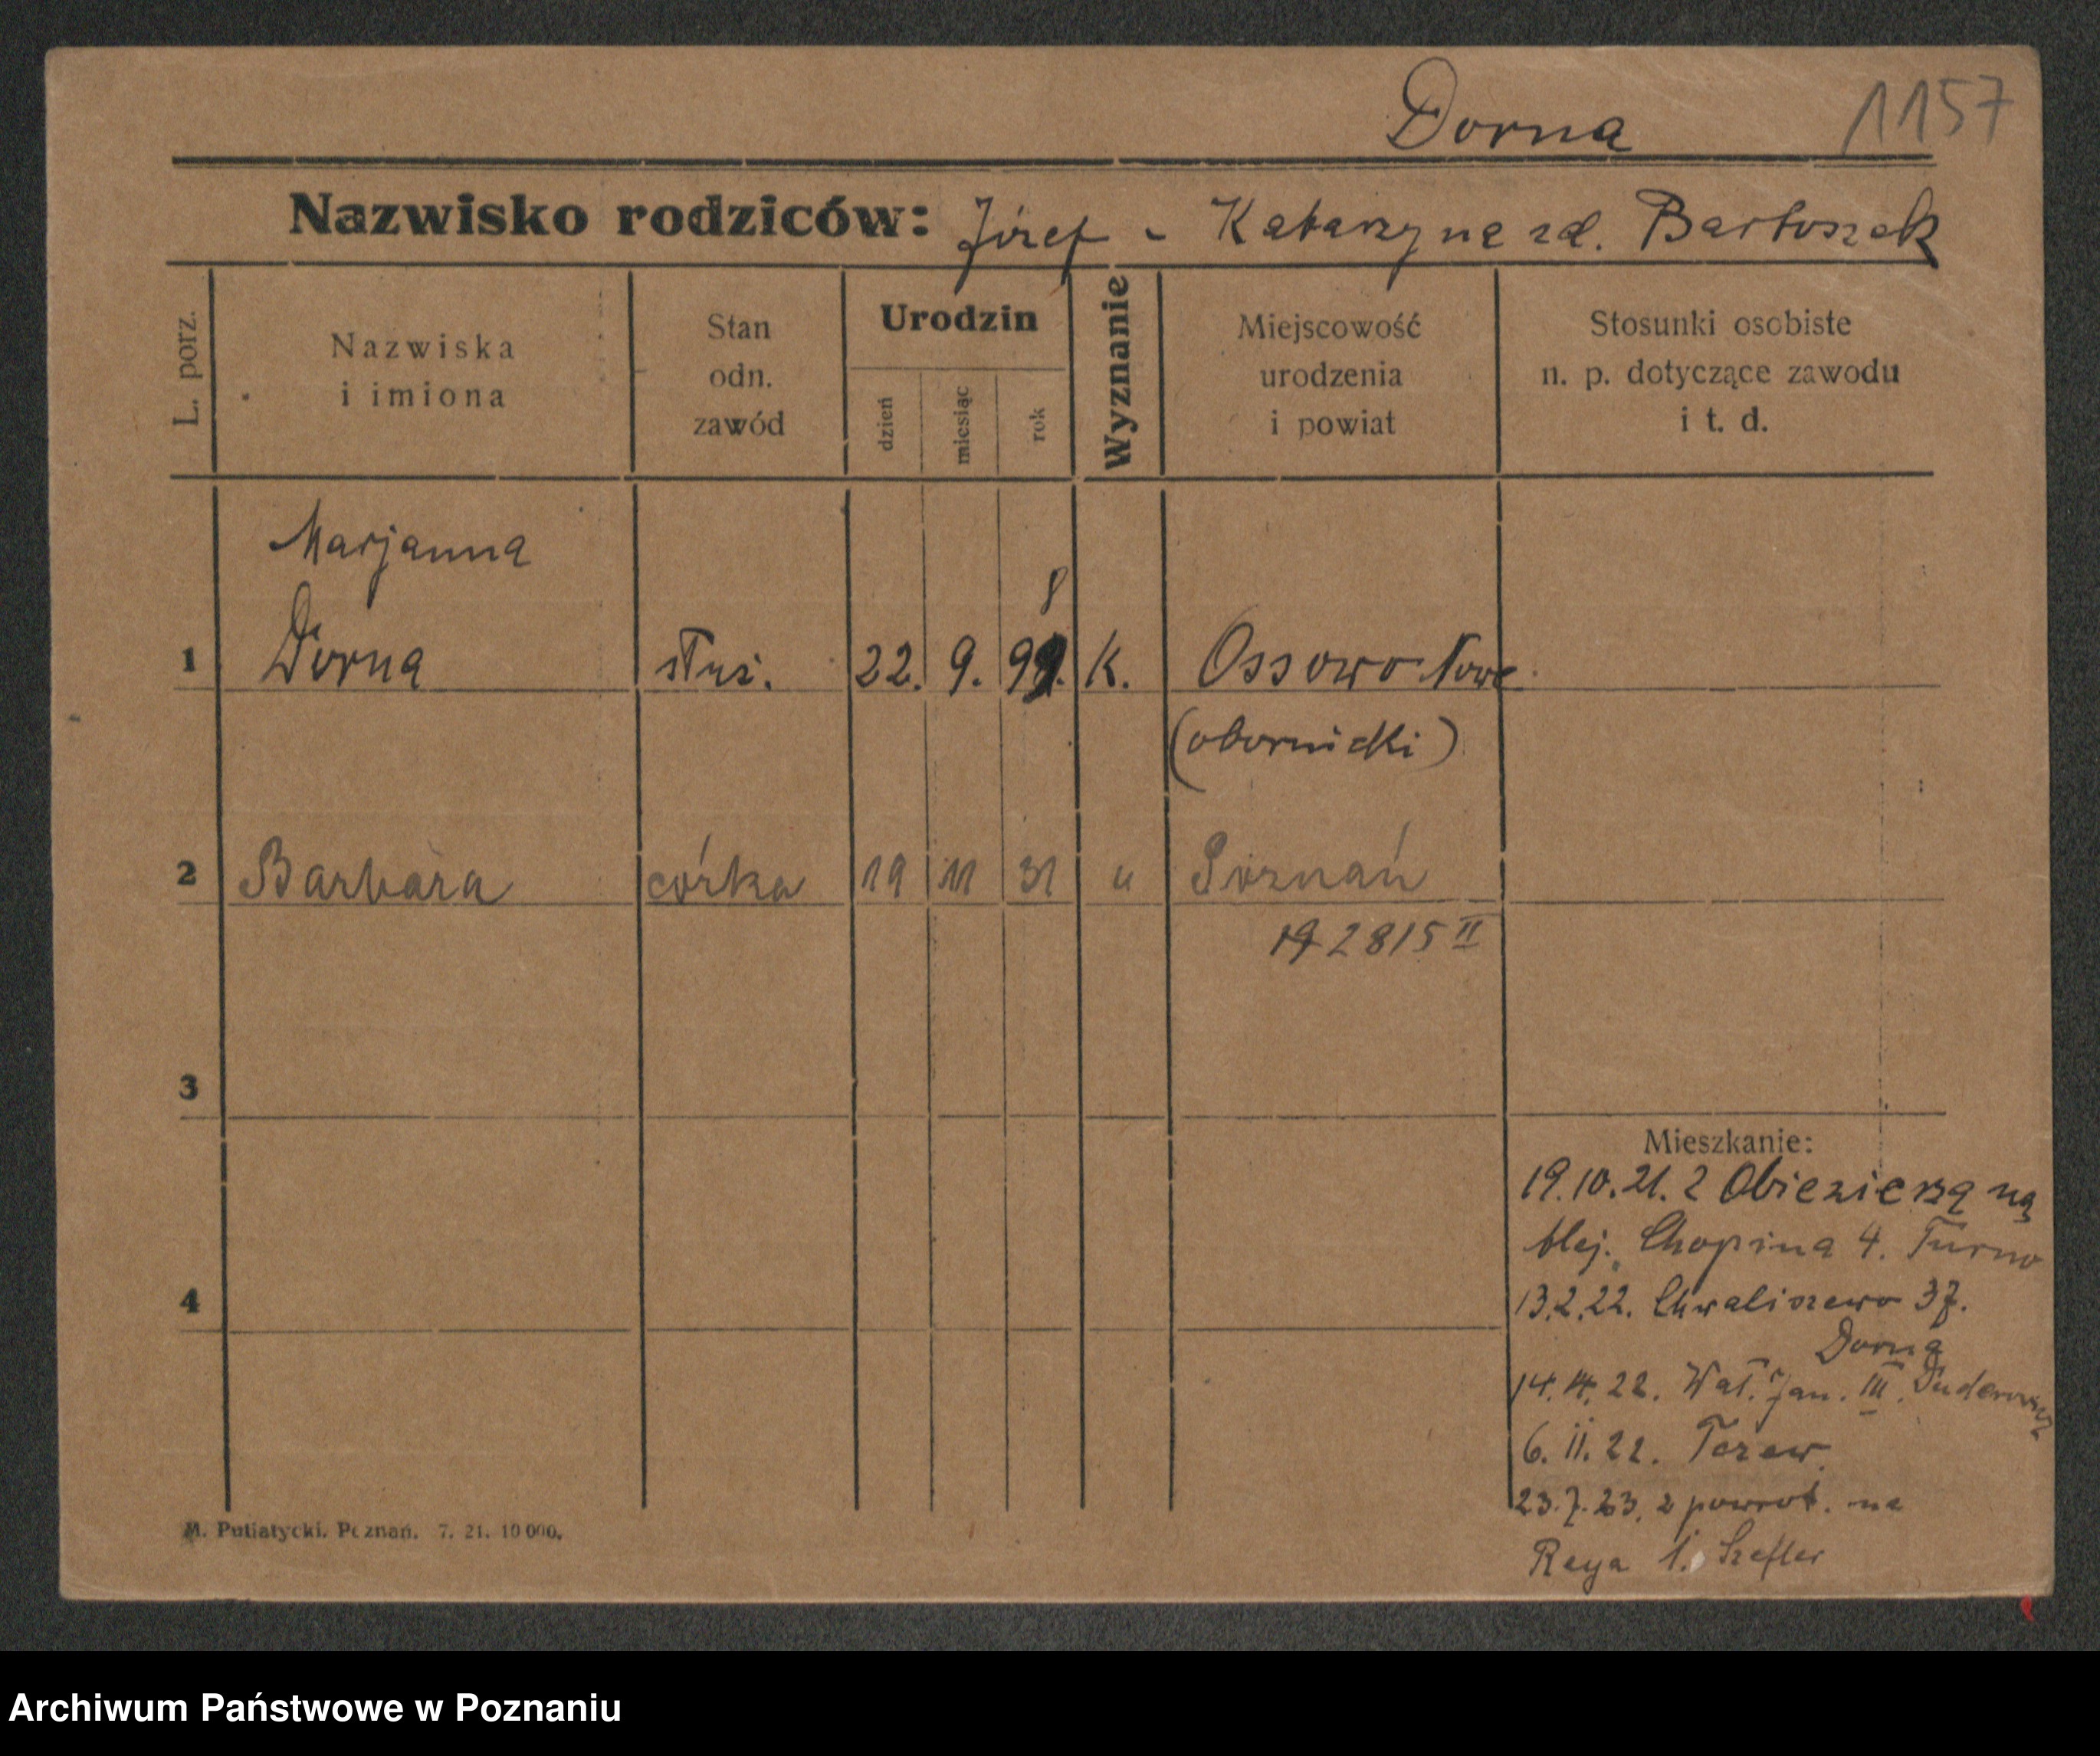 Dorna 1157
Nazwisko rodziców: Józef - Katarzyna zd. Bartoszak
L. porz.
Nazwiska
i imiona
Stan
odn.
zawód
Urodzin
dzień
miesiąc
rok
Wyznanie
Miejscowość
urodzenia
i powiat
Stosunki osobiste
n. p. dotyczące zawodu
i t. d.
Marjanna
8
1 Dorna służ. 22. 9. 99. K. Ossowo Nowe
(obornicki)
2 Barbara córka 19 11 31 u Poznań
192815 II
3
Mieszkanie:
19.10.21. z Obiezierza na
Chopina 4. Turno
4
13.2.22. Chwaliszewo 37.
Dorna
14.4.22. Wał. Jan. III.
6.11.22. Tczew.
23.7.23. z powrot. na
Reya 1. Szefler
M. Putiatycki. Poznań. 7. 21. 10 000.
Archiwum Państwowe w Poznaniu